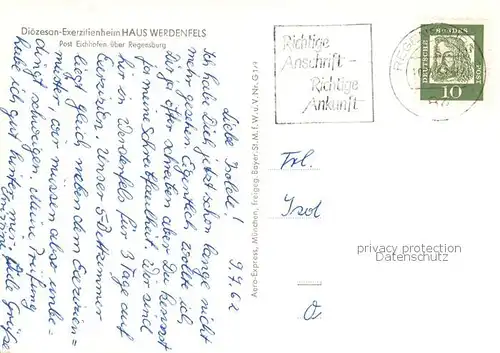 Diözesan-Exerzitienheim HAUS WERDENFELS
Post Eichhofen über Regensburg
9.4.62
Liebe Isolde!
Ich habe Dich jetzt schon lange nicht
mehr gesehen. Eigentlich wollte ich
Dir ja öfter schreiben aber Du kennst
ja meine Schreibfaulheit. Wir sind
hier in Werdenfels für 3 Tage auf
Exerzitien. Unser 5-Bettzimmer
liegt gleich neben dem Exerzitien=
, wir müssen also unbe-
dingt schweigen. Meine Prüfung
habe ich gut hinter mir. Viele Grüße
Aero-Express, München, Freigeg. Bayer. St. M. f. W. u. V. Nr. G
Richtige
Anschrift -
Richtige
Ankunft
DEUTSCHE BUNDESPOST
10
Frl.
Isol
privacy protection
Datenschutz